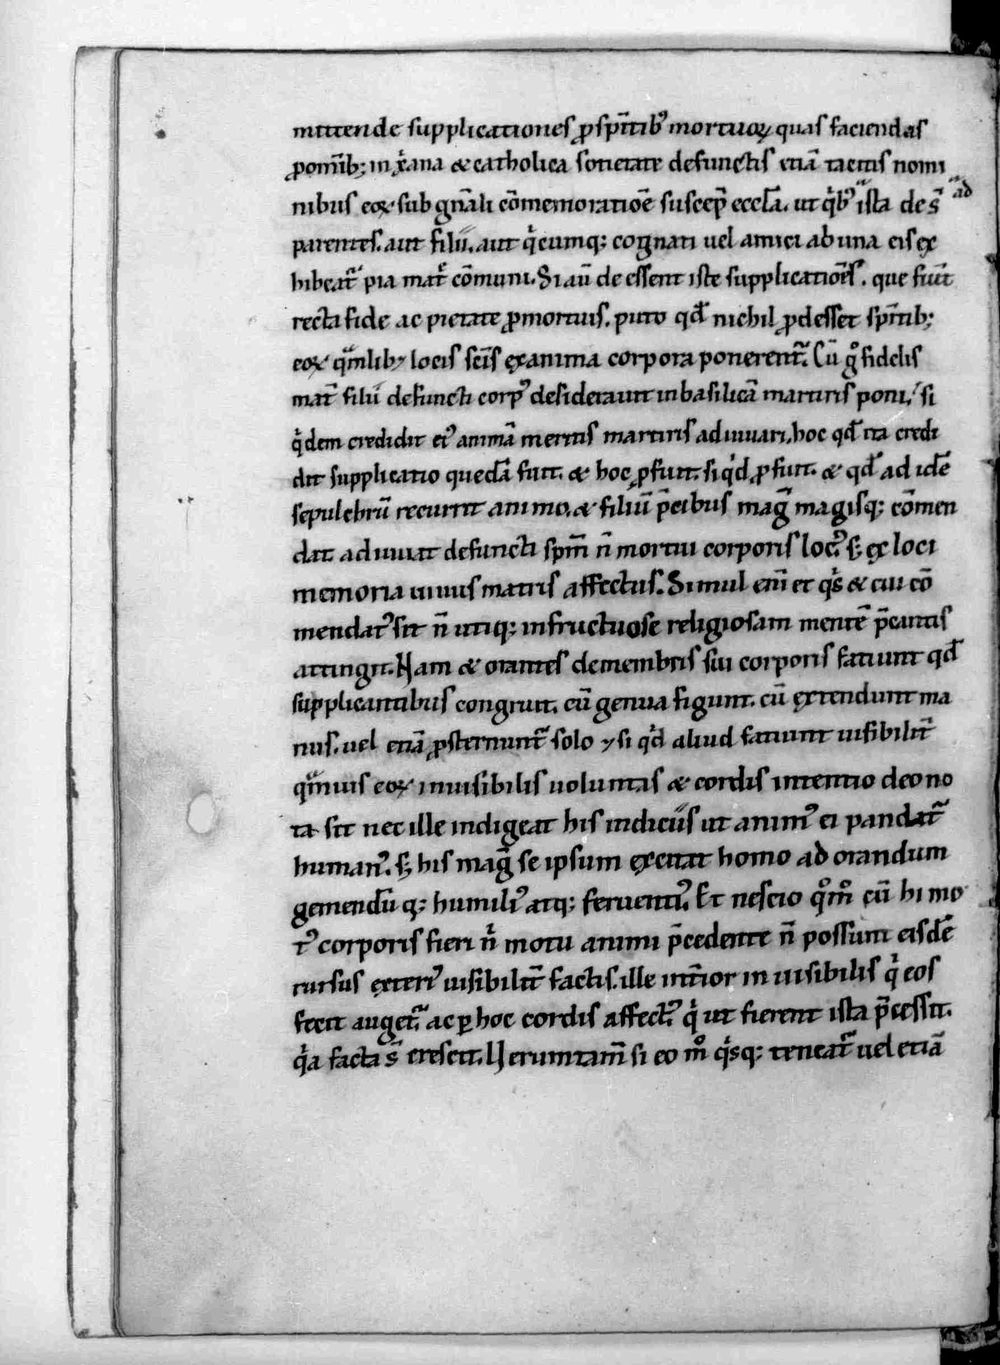 mittende supplicationes ꝓ sp̄itib᾽ mortuoꝝ quas faciendas
ꝓ om̄ib; in xp̄iana & catholica sotietate defunctis etiā tacitis nomi
nibus eoꝝ sub gn̄ali cōmemoratiōe suscep̄ eccłā. ut qͥb᾽ ista des̄ ad
parentes. aut filii. aut qͥcumq; cognati uel amici ab una eis ex
hibeat᷑ pia mat̄ cōmuni. Si aū de essent iste supplicatiōes. que fiūt
recta fide ac pietate ꝓ mortuis. puto qd̄ nichil ꝓdesset sp̄itib;
eoꝝ qᵃ̄mlib; locis scīs exanima corpora ponerent᷑. Cū gͦ fidelis
mat̄ filii defuncti corp᾽ desiderauit in basilicā martiris poni, si
qͥdem credidit ei᾽ animā meritis martiris adiuuari, hoc qd̄ ita credi
dit supplicatio quedā fuit. & hoc ꝓfuit. si qͥd ꝓfuit. & qd̄ ad idē
sepulchrū recurrit animo, & filiū p̄cibus mag᷑ magisq; cōmen
dat adiuuat defuncti sp̄m n̄ mortui corporis loc᾽, s; ex loci
memoria uiuus matris affectus. Simul eni̅ et qͥs & cui cō
mendat᾽ sit n̄ utiq; infructuose religiosam mentē p̄cantis
attingit. Nam & orantes de membris sui corporis fatiunt qd̄
supplicantibus congruit. cū genua figunt. cū extendunt ma
nus. uel etiā ꝓsternunt᷑ solo ⁊ si qͥd aliud fatiunt uisibilit̄
qᵃ̄muis eoꝝ inuisibilis uoluntas & cordis intentio deo no
ta sit nec ille indigeat his indiciis ut anim᾽ ei pandat᷑
human᾽. s; his mag᷑ se ipsum excitat homo ad orandum
gemendū q; humili᾽ atq; feruenti᾽. Et nescio qͦmͦ cū hi mo
t᾽ corporis fieri n̄ motu animi p̄cedente n̄ possunt eisdē
rursus exteri᾽ uisibilit̄ factis. ille int̄ior inuisibilis qͥ eos
fecit auget᷑, ac ꝑ hoc cordis affect᾽ qͥ ut fierent ista p̄cessit.
qͥa facta s̄ crescit. Uerumtam̄ si eo mͦ qͥsq; teneat᷑ uel etiā